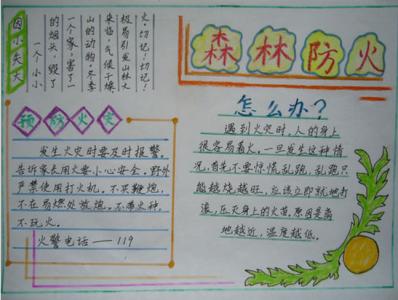 森林防火
因小失大
一个小小
的烟头,毁了
一个家,害了一
山的动物。冬季
来临,气候干燥
极易引发山林火
火,切记!切记!
预防火灾
发生火灾时要及时报警。
告诉家长用火要小心安全,野外
严禁使用打火机。不买鞭炮,
不在易燃处放炮。不带火种,
不玩火。
火警电话——119
怎么办?
遇到火灾时,人的身上
很容易着火,一旦发生这种情
况,首先不要惊慌乱跑,乱跑只
能越烧越旺,应该立即就地打
滚,压灭身上的火苗。原因是离
地越近,温度越低。